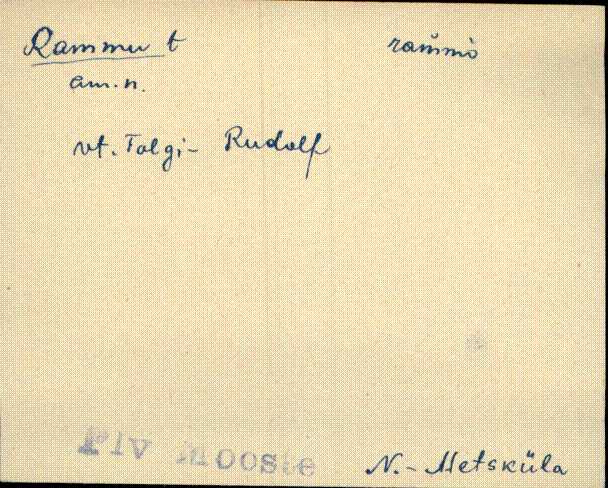 Rammu t ram̆mò
am.n.
vt. Talgi- Rudolf
Plv Mooste N.- Metsküla